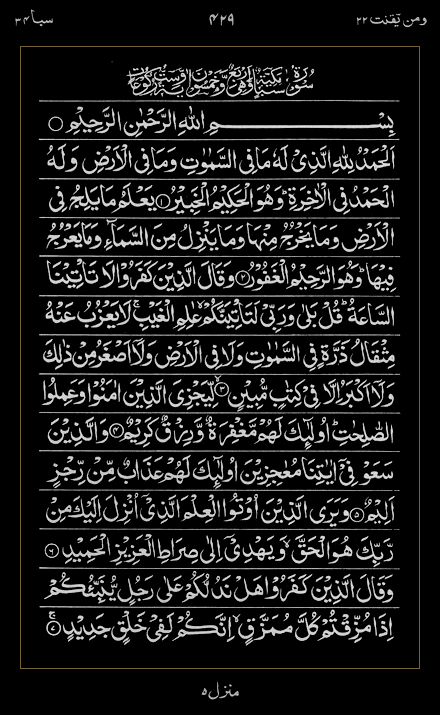 ومن یّقنت ۲۲
۴۲۹
سبا ۳۴
سُوْرَةُ سَبَاٍ مَكِّيَّةٌ وَّهِيَ اَرْبَعٌ وَّخَمْسُوْنَ اٰيَةً وَّسِتُّ رُكُوْعَاتٍ
بِسْــــــمِ اللّٰهِ الرَّحْمٰنِ الرَّحِيْمِ ○
اَلْحَمْدُ لِلّٰهِ الَّذِىْ لَهٗ مَا فِى السَّمٰوٰتِ وَمَا فِى الْاَرْضِ وَلَهُ
الْحَمْدُ فِى الْاٰخِرَةِ ؕ وَهُوَ الْحَكِيْمُ الْخَبِيْرُ ۝۱ يَعْلَمُ مَا يَلِجُ فِى
الْاَرْضِ وَمَا يَخْرُجُ مِنْهَا وَمَا يَنْزِلُ مِنَ السَّمَآءِ وَمَا يَعْرُجُ
فِيْهَا ؕ وَهُوَ الرَّحِيْمُ الْغَفُوْرُ ۝۲ وَقَالَ الَّذِيْنَ كَفَرُوْا لَا تَاْتِيْنَا
السَّاعَةُ ؕ قُلْ بَلٰى وَرَبِّىْ لَتَاْتِيَنَّكُمْ ۙ عٰلِمِ الْغَيْبِ ۚ لَا يَعْزُبُ عَنْهُ
مِثْقَالُ ذَرَّةٍ فِى السَّمٰوٰتِ وَلَا فِى الْاَرْضِ وَلَاۤ اَصْغَرُ مِنْ ذٰلِكَ
وَلَاۤ اَكْبَرُ اِلَّا فِىْ كِتٰبٍ مُّبِيْنٍ ۙ۝۳ لِّيَجْزِىَ الَّذِيْنَ اٰمَنُوْا وَعَمِلُوا
الصّٰلِحٰتِ ؕ اُولٰٓئِكَ لَهُمْ مَّغْفِرَةٌ وَّرِزْقٌ كَرِيْمٌ ۝۴ وَالَّذِيْنَ
سَعَوْ فِىْۤ اٰيٰتِنَا مُعٰجِزِيْنَ اُولٰٓئِكَ لَهُمْ عَذَابٌ مِّنْ رِّجْزٍ
اَلِيْمٌ ۝۵ وَيَرَى الَّذِيْنَ اُوْتُوا الْعِلْمَ الَّذِىْۤ اُنْزِلَ اِلَيْكَ مِنْ
رَّبِّكَ هُوَ الْحَقَّ ۙ وَيَهْدِىْۤ اِلٰى صِرَاطِ الْعَزِيْزِ الْحَمِيْدِ ۝۶
وَقَالَ الَّذِيْنَ كَفَرُوْا هَلْ نَدُلُّكُمْ عَلٰى رَجُلٍ يُّنَبِّئُكُمْ
اِذَا مُزِّقْتُمْ كُلَّ مُمَزَّقٍ ۙ اِنَّكُمْ لَفِىْ خَلْقٍ جَدِيْدٍ ۚ۝۷
منزل ۵